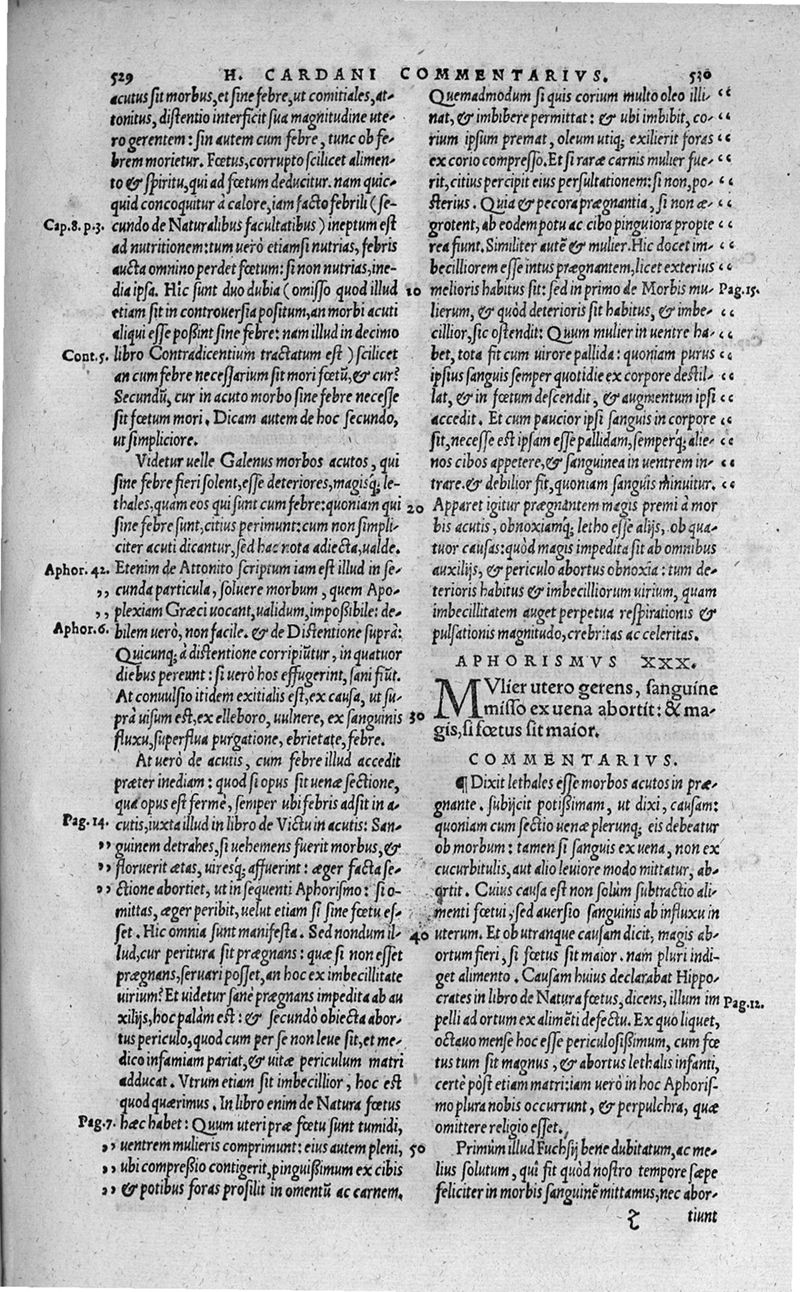 529 H. CARDANI COMMENTARIVS. 530
acutus sit morbus, et sine febre, ut comitiales, at-
tonitus, distentio interficit sua magnitudine ute-
ro gerentem: sin autem cum febre, tunc ob fe-
brem morietur. Fœtus, corrupto scilicet alimen-
to & spiritu, qui ad fœtum deducitur. nam quic-
quid concoquitur à calore, iam facto febrili (se-
Cap. 8. p. 3. cundo de Naturalibus facultatibus) ineptum est
ad nutritionem: tum uerò etiamsi nutrias, febris
aucta omnino perdet fœtum: si non nutrias, ine-
dia ipsa. Hic sunt duo dubia (omisso quod illud 10
etiam sit in controuersia positum, an morbi acuti
aliqui esse poßint sine febre: nam illud in decimo
Cont. 5. libro Contradicentium tractatum est) scilicet
an cum febre necessarium sit mori fœtū, & cur?
Secundū, cur in acuto morbo sine febre necesse
sit fœtum mori. Dicam autem de hoc secundo,
ut simpliciore.
Videtur uelle Galenus morbos acutos, qui
sine febre fieri solent, esse deteriores, magisq; le-
thales, quam eos qui sunt cum febre: quoniam qui 20
sine febre sunt, citius perimunt: cum non simpli-
citer acuti dicantur, sed hac nota adiecta, ualde.
Aphor. 42. Etenim de Attonito scriptum iam est illud in se-
,, cunda particula, soluere morbum, quem Apo-
,, plexiam Græci uocant, ualidum, impoßibile: de-
Aphor. 6. bilem uerò, non facile. & de Distentione suprà:
Quicunq; à distentione corripiūtur, in quatuor
diebus pereunt: si uerò hos effugerint, sani fiūt.
At conuulsio itidem exitialis est, ex causa, ut su-
prà uisum est, ex elleboro, uulnere, ex sanguinis 30
fluxu, superflua purgatione, ebrietate, febre.
At uerò de acutis, cum febre illud accedit
præter inediam: quod si opus sit uenæ sectione,
qua opus est fermè, semper ubi febris adsit in a-
Pag. 14. cutis, iuxta illud in libro de Victu in acutis: San-
,, guinem detrahes, si uehemens fuerit morbus, &
,, floruerit ætas, uiresq; affuerint: æger facta se-
,, ctione abortiet, ut in sequenti Aphorismo: si o-
mittas, æger peribit, uelut etiam si sine fœtu es-
set. Hic omnia sunt manifesta. Sed nondum il- 40
lud, cur peritura sit prægnans: quæ si non esset
prægnans, seruari posset, an hoc ex imbecillitate
uirium? Et uidetur sanè prægnans impedita ab au
xilijs, hoc palàm est: & secundò obiecta abor-
tus periculo, quod cum per se non leue sit, et me-
dico infamiam pariat, & uitæ periculum matri
adducat. Vtrum etiam sit imbecillior, hoc est
quod quærimus. In libro enim de Natura fœtus
Pag. 7. hæc habet: Quum uteri præ fœtu sunt tumidi,
,, uentrem mulieris comprimunt: eius autem pleni, 50
,, ubi compreßio contigerit, pinguißimum ex cibis
,, & potibus foras prosilit in omentū ac carnem.
Quemadmodum si quis corium multo oleo illi- “
nat, & imbibere permittat: & ubi imbibit, co- “
rium ipsum premat, oleum utiq; exilierit foras “
ex corio compresso. Et si raræ carnis mulier fue- “
rit, citius percipit eius persultationem: si non, po- “
sterius. Quia & pecora prægnantia, si non æ- “
grotent, ab eodem potu ac cibo pinguiora propte “
rea fiunt. Similiter autē & mulier. Hic docet im- “
becilliorem esse intus prægnantem, licet exterius “
melioris habitus sit: sed in primo de Morbis mu- Pag. 15.
lierum, & quòd deterioris sit habitus, & imbe-
cillior, sic ostendit: Quum mulier in uentre ha- “
bet, tota fit cum uirore pallida: quoniam purus “
ipsius sanguis semper quotidie ex corpore destil- “
lat, & in fœtum descendit, & augmentum ipsi “
accedit. Et cum paucior ipsi sanguis in corpore “
sit, necesse est ipsam esse pallidam, semperq; alie- “
nos cibos appetere, & sanguinea in uentrem in- “
trare. & debilior fit, quoniam sanguis minuitur. “
Apparet igitur prægnantem magis premi à mor
bis acutis, obnoxiamq; letho esse alijs, ob qua-
tuor causas: quòd magis impedita sit ab omnibus
auxilijs, & periculo abortus obnoxia: tum de-
terioris habitus & imbecilliorum uirium, quam
imbecillitatem auget perpetua respirationis &
pulsationis magnitudo, crebritas ac celeritas.
APHORISMVS XXX.
MVlier utero gerens, sanguine
misso ex uena abortit: & ma-
gis, si fœtus sit maior.
COMMENTARIVS.
¶ Dixit lethales esse morbos acutos in præ-
gnante. subijcit potißimam, ut dixi, causam:
quoniam cum sectio uenæ plerunq; eis debeatur
ob morbum: tamen si sanguis ex uena, non ex
cucurbitulis, aut alio leuiore modo mittatur, ab-
ortit. Cuius causa est non solùm subtractio ali-
menti fœtui, sed auersio sanguinis ab influxu in
uterum. Et ob utranque causam dicit, magis ab-
ortum fieri, si fœtus sit maior. nam pluri indi-
get alimento. Causam huius declarabat Hippo-
crates in libro de Natura fœtus, dicens, illum im Pag. 12.
pelli ad ortum ex alimēti defectu. Ex quo liquet,
octauo mense hoc esse periculosißimum, cum fœ
tus tum sit magnus, & abortus lethalis infanti,
certè pòst etiam matri: iam uerò in hoc Aphoris-
mo plura nobis occurrunt, & perpulchra, quæ
omittere religio esset.
Primùm illud Fuchsij bene dubitatum, ac me-
lius solutum, quî fit quòd nostro tempore sæpe
feliciter in morbis sanguinē mittamus, nec abor-
tiunt